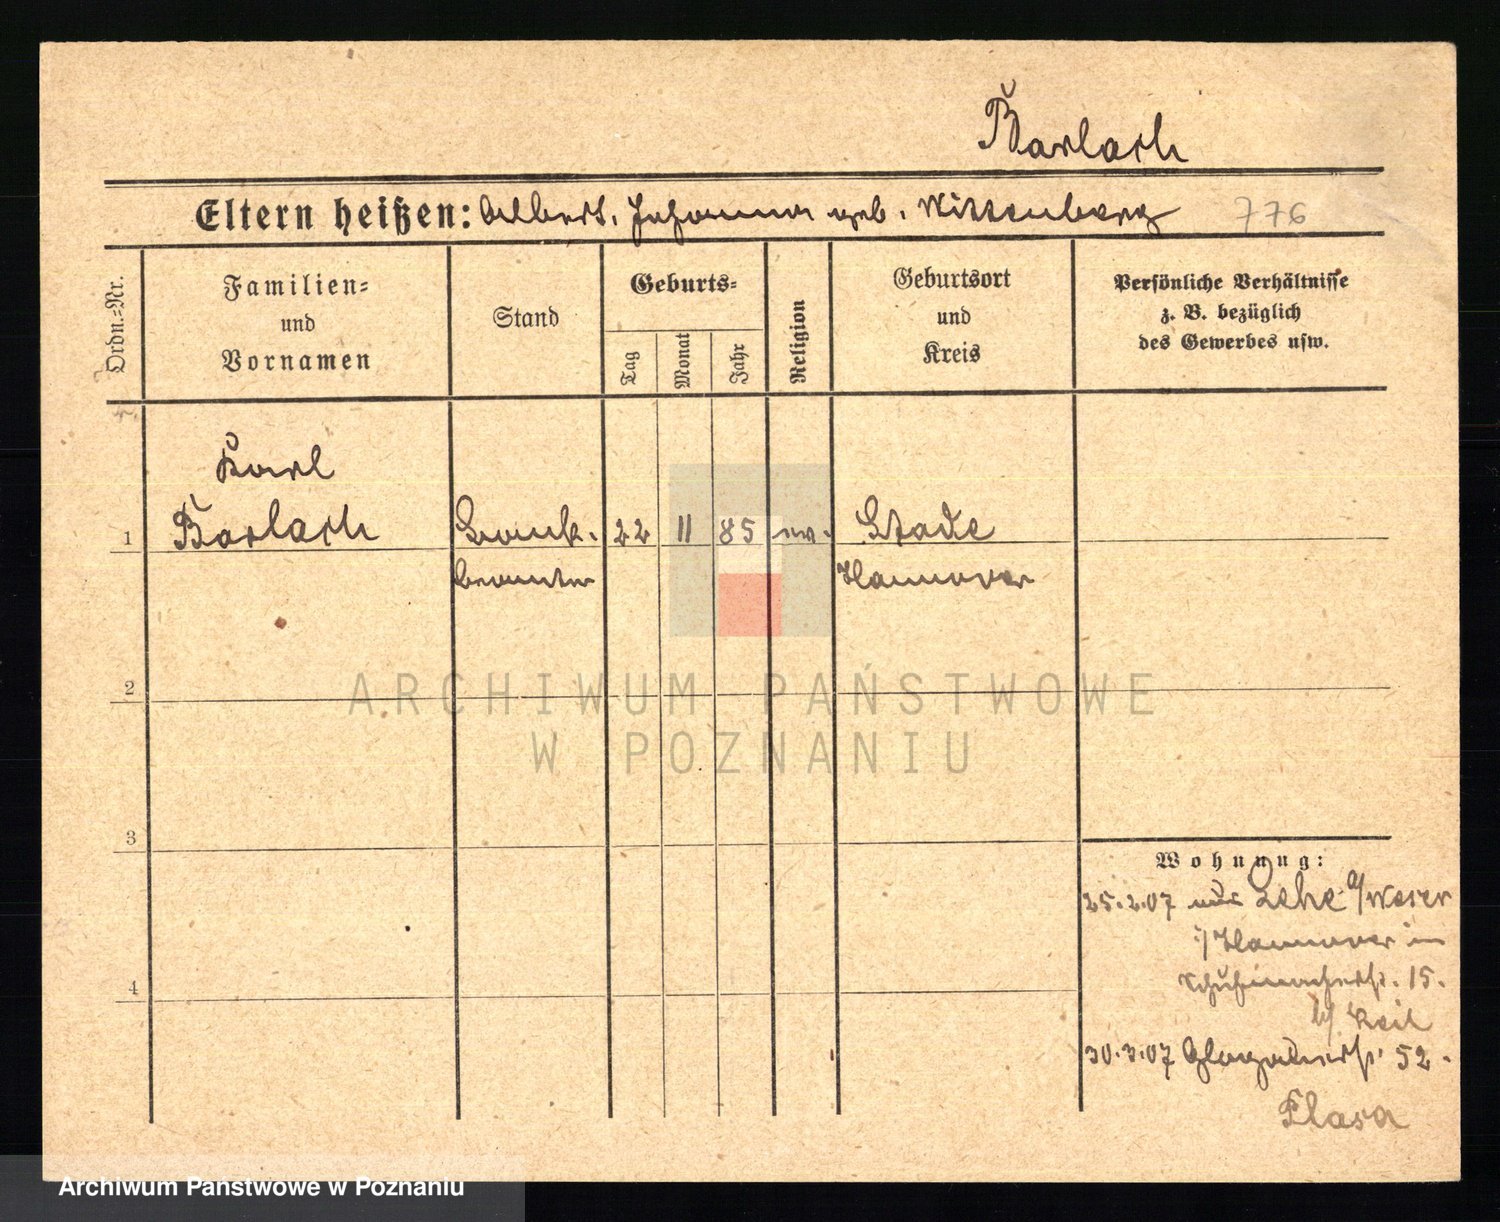 Barlach
Eltern heißen: Albert, Johanna geb. Wittenberg 776
Ordn.-Nr.
Familien-
und
Vornamen
Stand
Geburts-
Tag
Monat
Jahr
Religion
Geburtsort
und
Kreis
Persönliche Verhältnisse
z. B. bezüglich
des Gewerbes usw.
Karl
1 Barlach Bank- 22 11 85 ev. Stade
beamter Hannover
2
3
4
Wohnung:
25.2.07 aus Lehe a/Weser
i/Hannover in
Schuhmacherstr. 15.
b/ Keil
30.3.07 Glogauerstr. 52.
ARCHIWUM PAŃSTWOWE
W POZNANIU
Archiwum Państwowe w Poznaniu